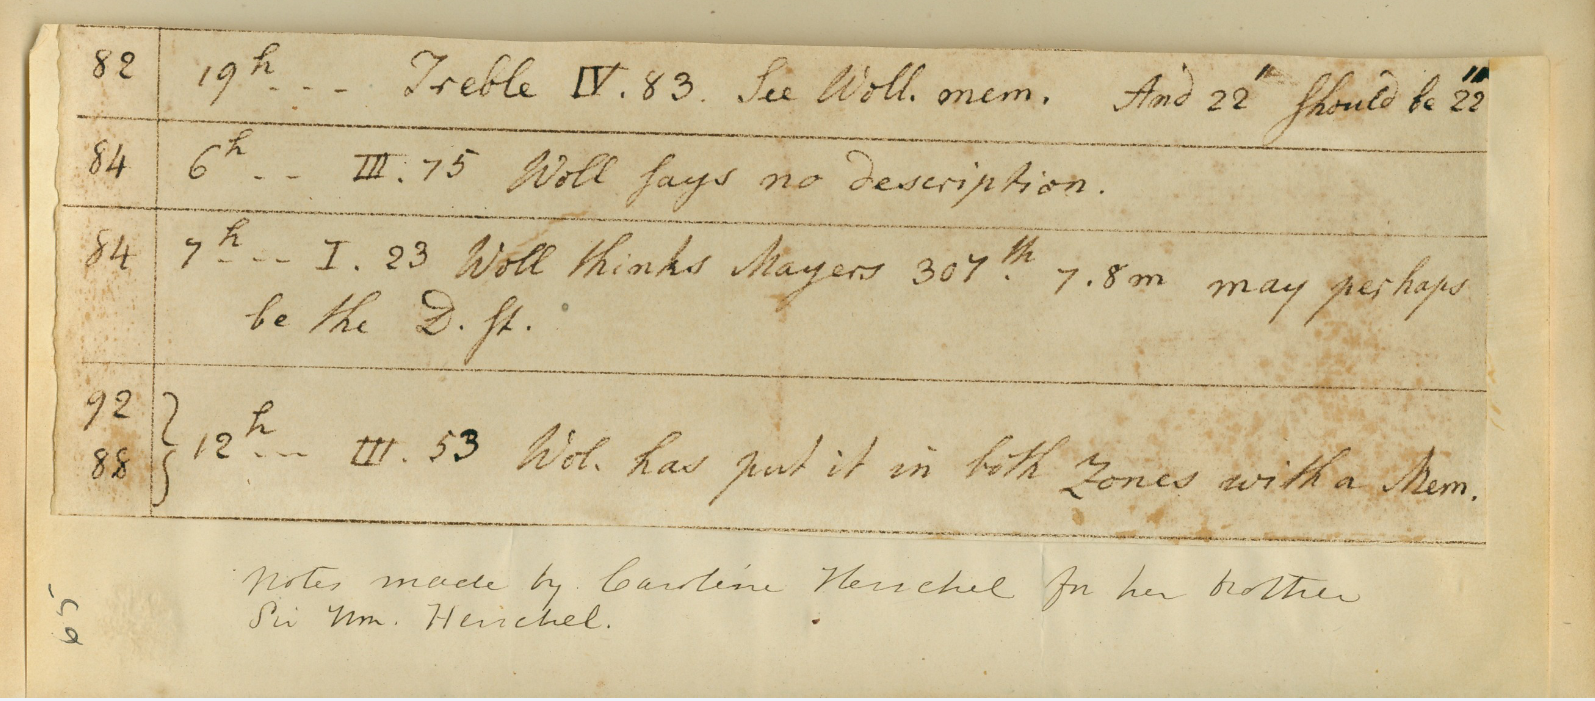 82 19h - - - Treble IV. 83. See Woll. mem. And 22" should be 22'"
84 6h - - III. 75 Woll says no description.
84 7h - - - I. 23 Woll thinks Mayers 307th 7.8m may perhaps
be the D. st.
92
88 } 12h - - - III. 53 Wol. has put it in both Zones with a Mem.
Notes made by Caroline Herschel for her brother
Sir Wm. Herschel.
65